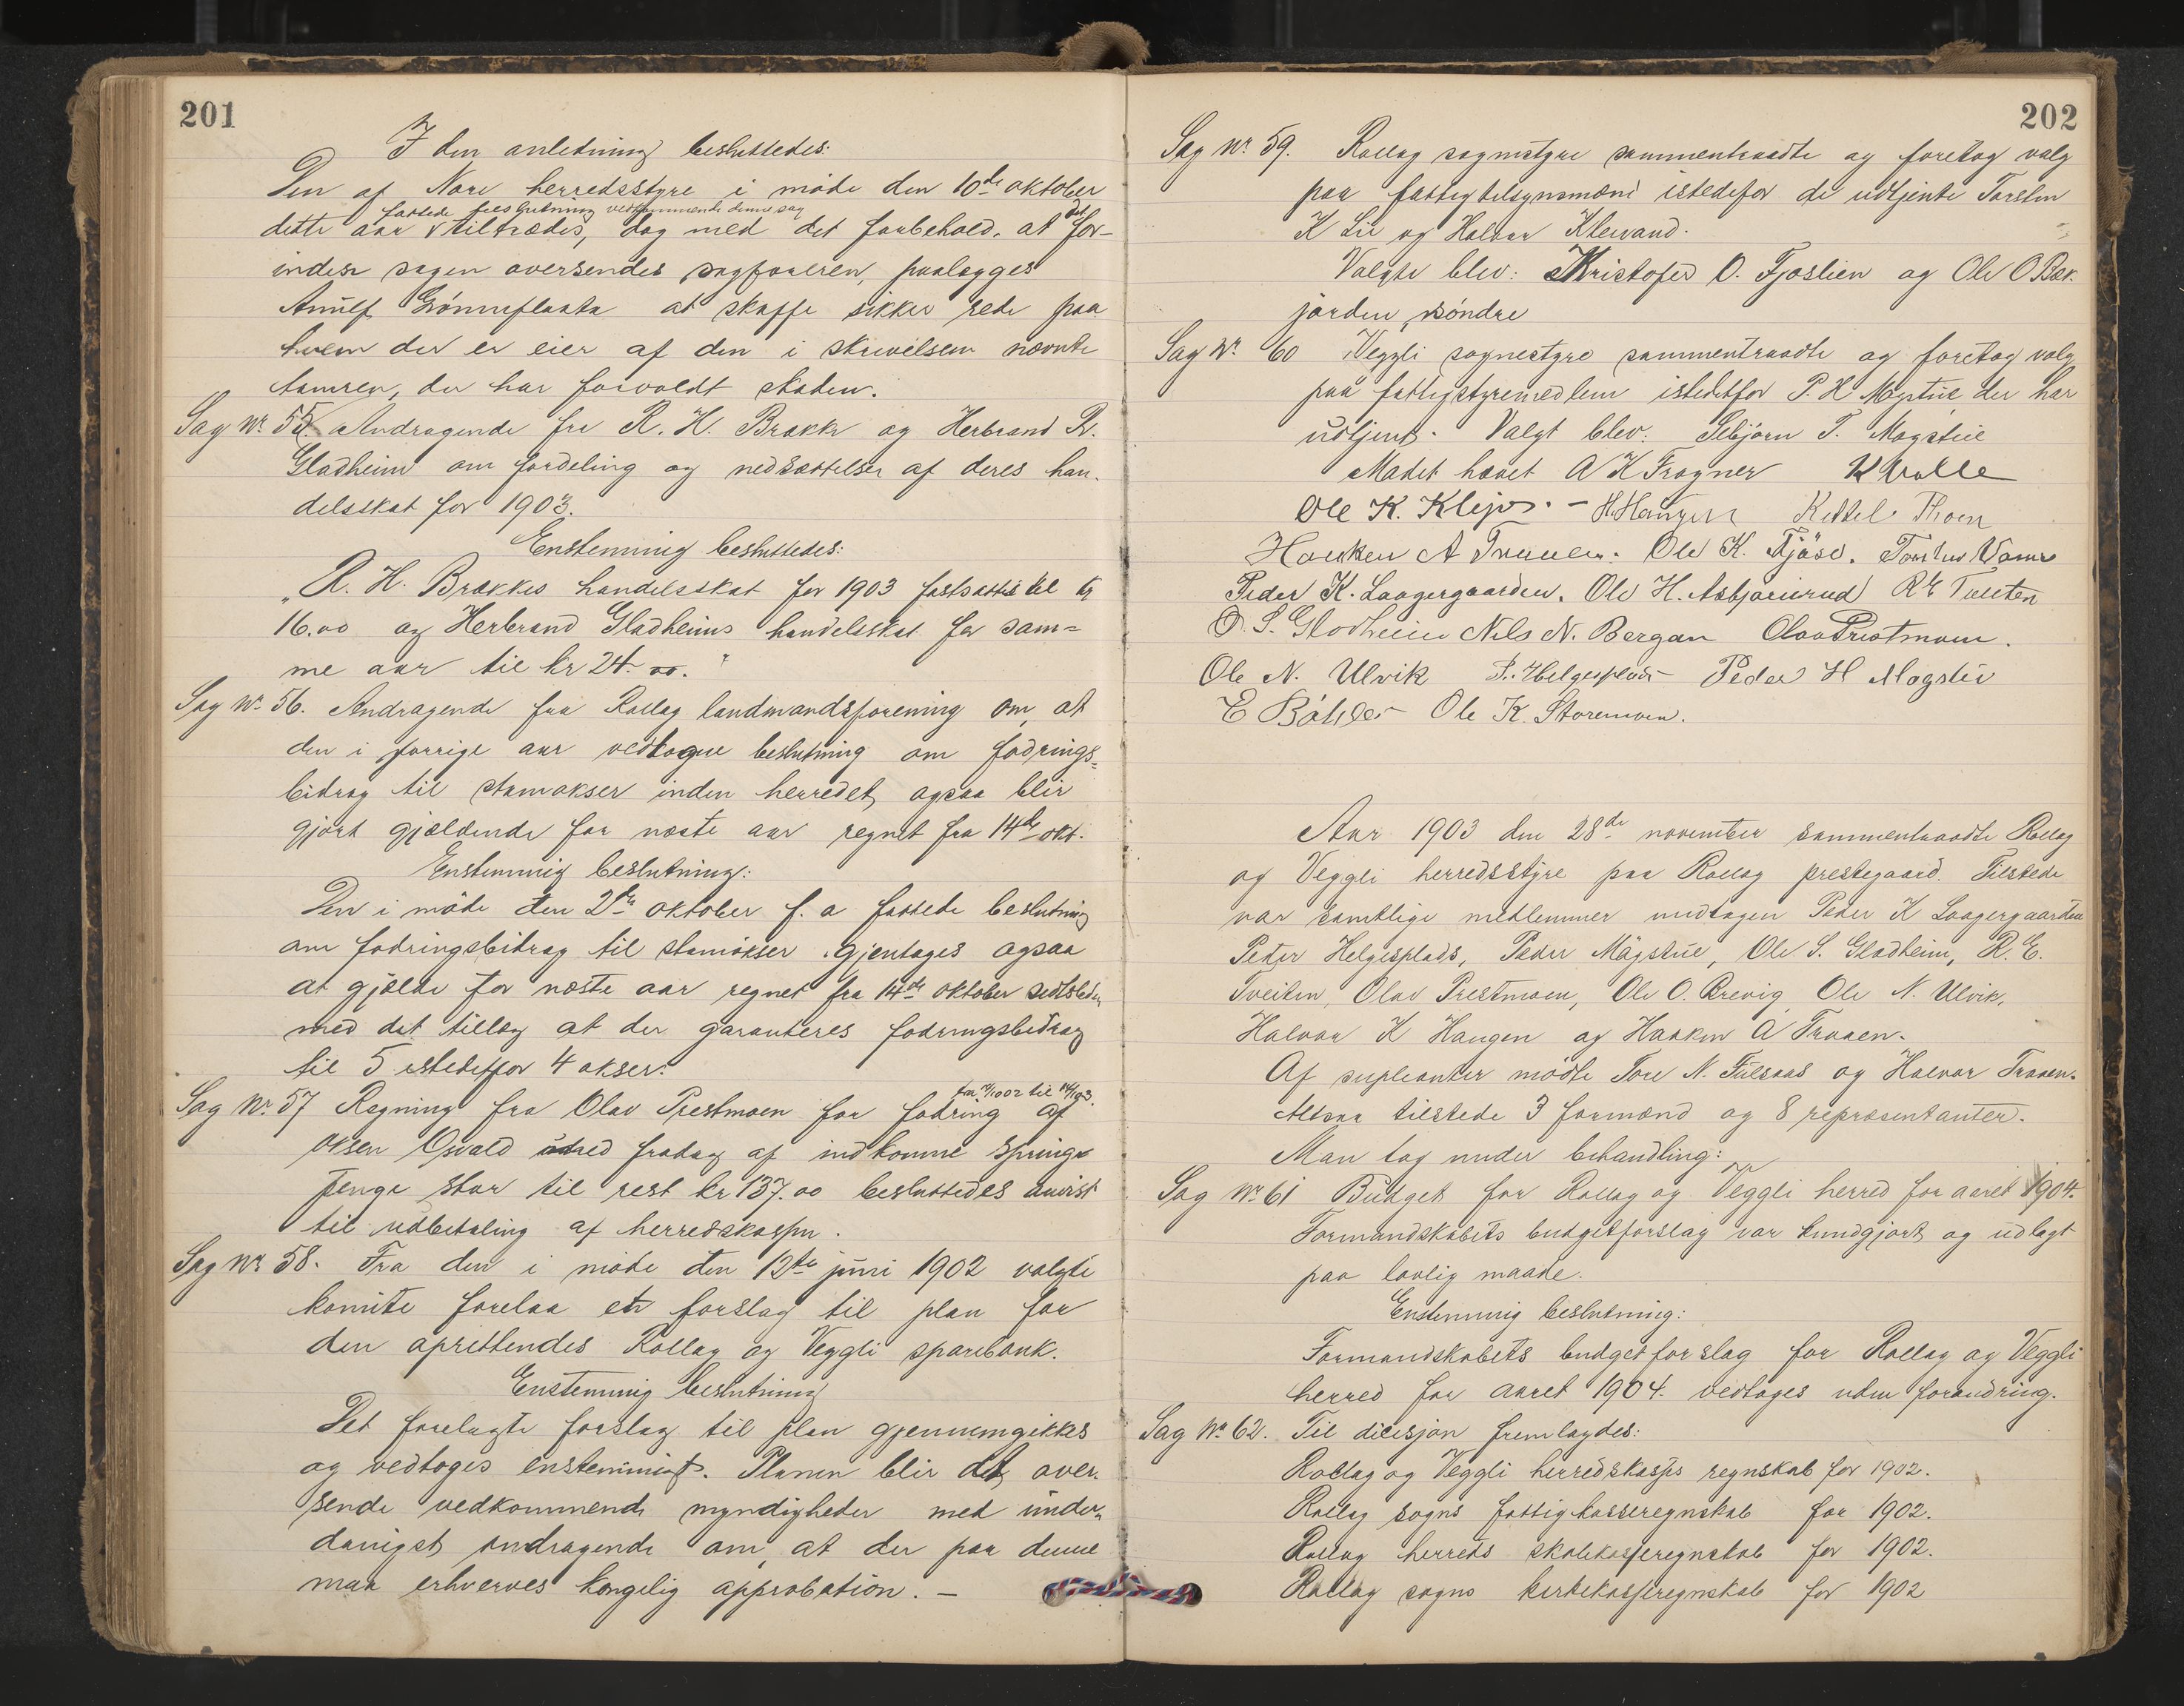 201
I den anledning besluttedes:
Den af Nore herredsstyre i møde den 10de oktober
fattede beslutning vedkommende denne sag
dette aar tiltrædes, dog med det forbehold, at det for-
inden sagen oversendes sagføreren, paalægges
Arnulf Grönneflaata at skaffe sikker rede paa
hvem der er eier af den i skrivelsen nævnte
tamren, der har forvoldt skaden.
Sag Nr. 55. Andragende fra R. H. Brakke og Herbrand R.
Gladheim om fordeling og nedsættelse af deres han-
delsskat for 1903.
Enstemmig besluttedes:
"R. H. Brakkes handelsskat for 1903 fastsættes til kr
16.00 og Herbrand Gladheims handelsskat for sam=
me aar til kr 24.00."
Sag Nr. 56. Andragende fra Rollag landmandsforening om, at
den i forrige aar vedtagne beslutning om fodrings=
bidrag til stamokser inden herredet, ogsaa blir
gjort gjældende for næste aar regnet fra 14de okt.
Enstemmig beslutning:
Den i möde den 2den oktober f. a fattede beslutning
om fodringsbidrag til stamokser gjentages ogsaa
at gjælde for næste aar regnet fra 14de oktober sidstleden
med det tillæg at der garanteres fodringsbidrag
til 5 istedetfor 4 okser.
fra 14/10 02 til 14/10 3.
Sag Nr. 57 Regning fra Olav Prestmoen for fodring af
oksen Osvald med fradrag af indkomne springe
penge stor til rest kr 137.00 besluttedes anvist
til udbetaling af herredskassen.
Sag Nr 58. Fra den i möde den 12te juni 1902 valgte
komite forelaa et forslag til plan for
den oprettendes Rollag og Veggli sparebank.
Enstemmig beslutning
Det forelagte forslag til plan gjennemgikkes
og vedtoges enstemmigt. Planen blir at over-
sende vedkommende myndigheder med under-
danigst andragende om, at der paa denne
maa erhverves kongelig approbation. –
202
Sag Nr. 59. Rollag sognestyre sammentraadte og foretog valg
paa fattigtilsynsmænd istedefor de udtjente Torsten
K Lie og Halvor Klevand.
Valgte blev: Kristofer O. Fjøslien og Ole O. Bæk-
jorden, söndre
Sag Nr. 60 Veggli sognestyre sammentraadte og foretog valg
paa fattigstyremedlem istedetfor P. H Mogstue der har
udtjent. Valgt blev: Sebjörn T. Mogstue
Mødet hævet A K Frogner K Kvalle
Ole K. Klejvs. – H. Haugen Kittel Thoen
Haaken A Traaen. Ole K. Fjöse. Torsten Vame
Peder K. Laagergaarden. Ole H. Asbjörnrud R E Tveiten
O. S. Gladheim Nils N. Bergan Olav Prestmoen.
Ole N. Ulvik P. Helgesplads Peder H Mogstue
E Böhler Ole K. Storemoen.
Aar 1903 den 28de november sammentraadte Rollag
og Veggli herredsstyre paa Rollag prestegaard. Tilstede
var samtlige medlemmer undtagen Peder K Laagergaarden
Peder Helgesplads, Peder Mögstue, Ole S. Gladheim, R. E.
Tveiten, Olav Prestmoen, Ole O. Brevig Ole N. Ulvik,
Halvor K Haugen og Haaken A Traaen.
Af supleanter mödte Tore N. Fulsaas og Halvor Traaen.
Altsaa tilstede 3 formænd og 8 repræsentanter.
Man tog under behandling:
Sag Nr. 61 Budget for Rollag og Veggli herred for aaret 1904.
Formandskabets budgetforslag var kundgjort og udlagt
paa lovlig maade.
Enstemmig beslutning:
Formandskabets budgetforslag for Rollag og Veggli
herred for aaret 1904. vedtages uden forandring.
Sag Nr. 62. Til decisjon fremlagdes:
Rollag og Veggli herredskasses regnskab for 1902.
Rollag sogns fattigkasseregnskab for 1902.
Rollag herreds skolekasseregnskab for 1902.
Rollag sogns kirkekasseregnskab for 1902